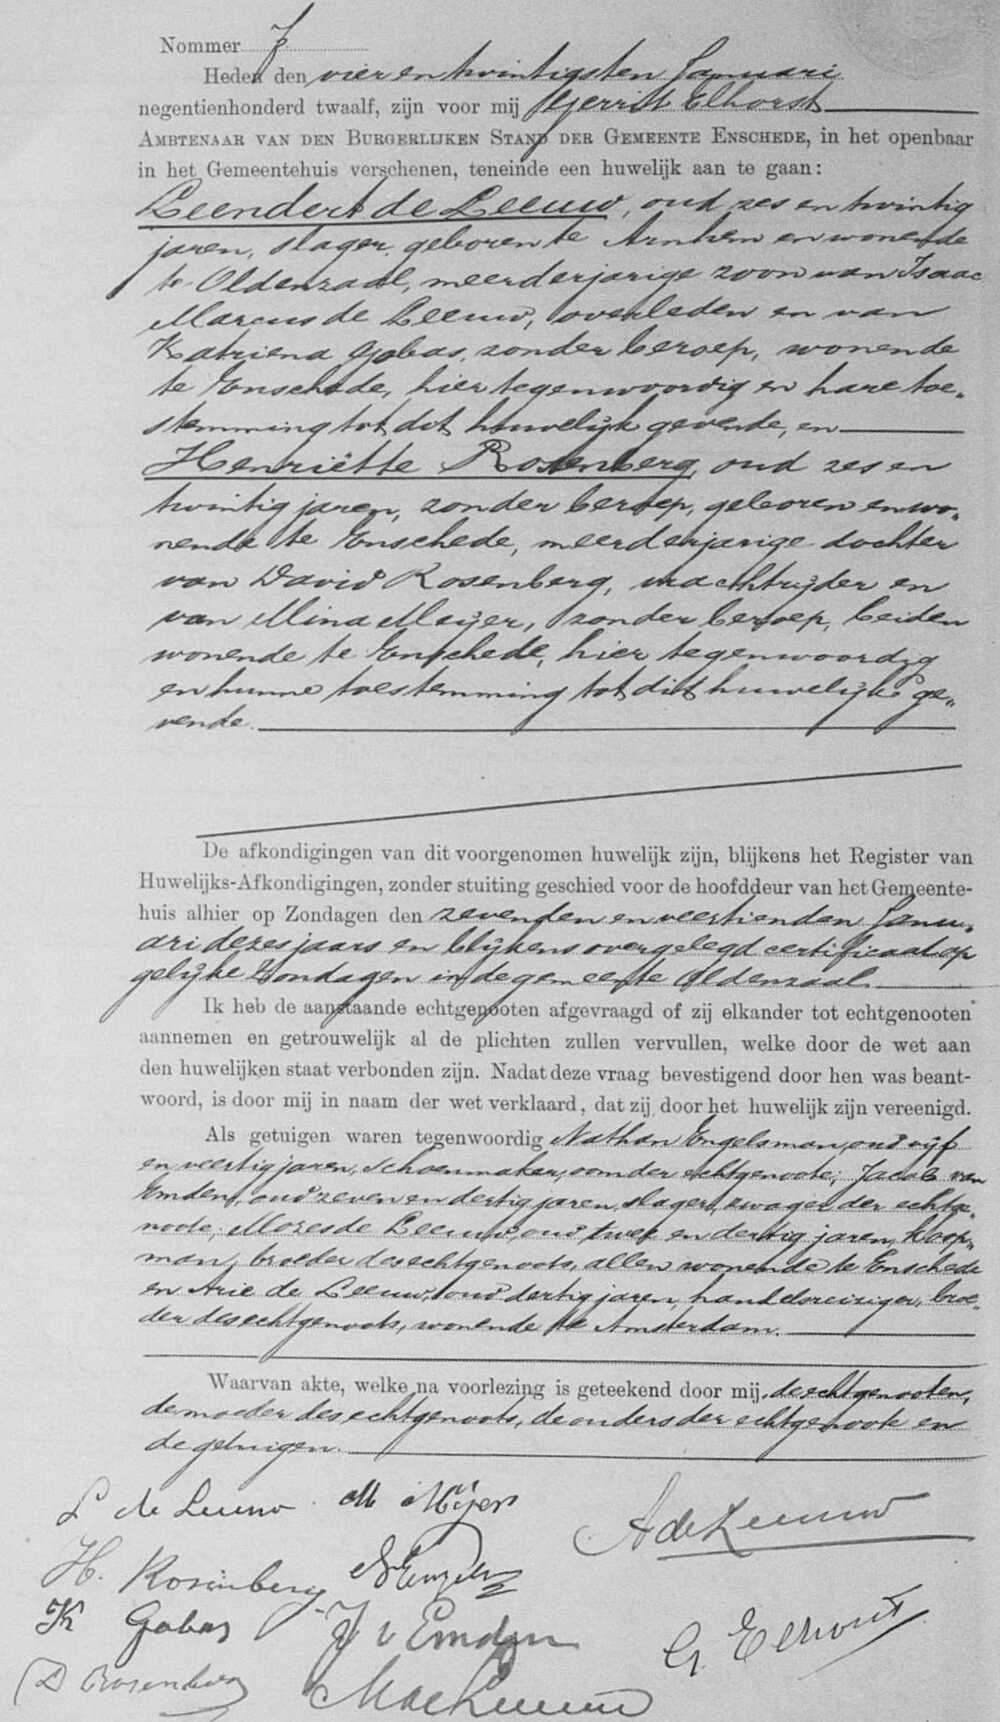 Nommer 7
Heden den vier en twintigsten Januari
negentienhonderd twaalf, zijn voor mij Gerrit Elhorst
AMBTENAAR VAN DEN BURGERLIJKEN STAND DER GEMEENTE ENSCHEDE, in het openbaar
in het Gemeentehuis verschenen, teneinde een huwelijk aan te gaan:
Leendert de Leeuw, oud zes en twintig
jaren, slager, geboren te Arnhem en wonende
te Oldenzaal, meerderjarige zoon van Isaac
Marcus de Leeuw, overleden en van
Katriena Gobas, zonder beroep, wonende
te Enschede, hier tegenwoordig en hare toe-
stemming tot dit huwelijk gevende, en
Henriëtte Rosenberg, oud zes en
twintig jaren, zonder beroep, geboren en wo-
nende te Enschede, meerderjarige dochter
van David Rosenberg, vrachtrijder en
van Mina Meijer, zonder beroep, beiden
wonende te Enschede, hier tegenwoordig
en hunne toestemming tot dit huwelijk ge-
vende.
De afkondigingen van dit voorgenomen huwelijk zijn, blijkens het Register van
Huwelijks-Afkondigingen, zonder stuiting geschied voor de hoofddeur van het Gemeente-
huis alhier op Zondagen den zevenden en veertienden Janu-
ari dezes jaars en blijkens overgelegd certificaat op
gelijke Zondagen in de gemeente Oldenzaal.
Ik heb de aanstaande echtgenooten afgevraagd of zij elkander tot echtgenooten
aannemen en getrouwelijk al de plichten zullen vervullen, welke door de wet aan
den huwelijken staat verbonden zijn. Nadat deze vraag bevestigend door hen was beant-
woord, is door mij in naam der wet verklaard, dat zij door het huwelijk zijn vereenigd.
Als getuigen waren tegenwoordig Nathan Engelsman, oud vijf
en veertig jaren, schoenmaker, oom der echtgenoote; Jacob van
Emden, oud zeven en dertig jaren, slager, zwager der echtge-
noote; Mozes de Leeuw, oud twee en dertig jaren, koop-
man, broeder des echtgenoots, allen wonende te Enschede
en Arie de Leeuw, oud dertig jaren, handelsreiziger, broe-
der des echtgenoots, wonende te Amsterdam.
Waarvan akte, welke na voorlezing is geteekend door mij, de echtgenooten,
de moeder des echtgenoots, de ouders der echtgenoote en
de getuigen.
L de Leeuw M Mijer
A de Leeuw
H. Rosenberg
K Gobas J v Emden
G. Elhorst
D Rosenberg M de Leeuw